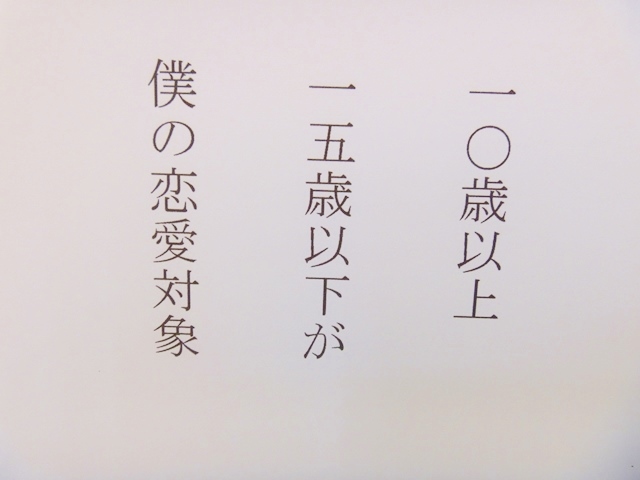 一〇歳以上
一五歳以下が
僕の恋愛対象